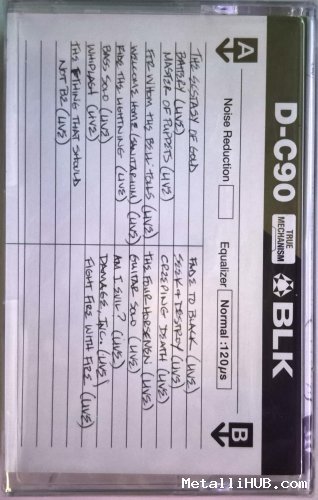 A
THE ECSTASY OF GOLD
BATTERY (LIVE)
MASTER OF PUPPETS (LIVE)
FOR WHOM THE BELL TOLLS (LIVE)
WELCOME HOME (SANITARIUM) (LIVE)
RIDE THE LIGHTNING (LIVE)
BASS SOLO (LIVE)
WHIPLASH (LIVE)
THE THING THAT SHOULD
NOT BE (LIVE)
Noise Reduction
Equalizer Normal:120µs
B
FADE TO BLACK (LIVE)
SEEK & DESTROY (LIVE)
CREEPING DEATH (LIVE)
THE FOUR HORSEMEN (LIVE)
GUITAR SOLO (LIVE)
AM I EVIL? (LIVE)
DAMAGE, INC. (LIVE)
FIGHT FIRE WITH FIRE (LIVE)
D-C90
TRUE
MECHANISM
BLK
MetalliHUB.com